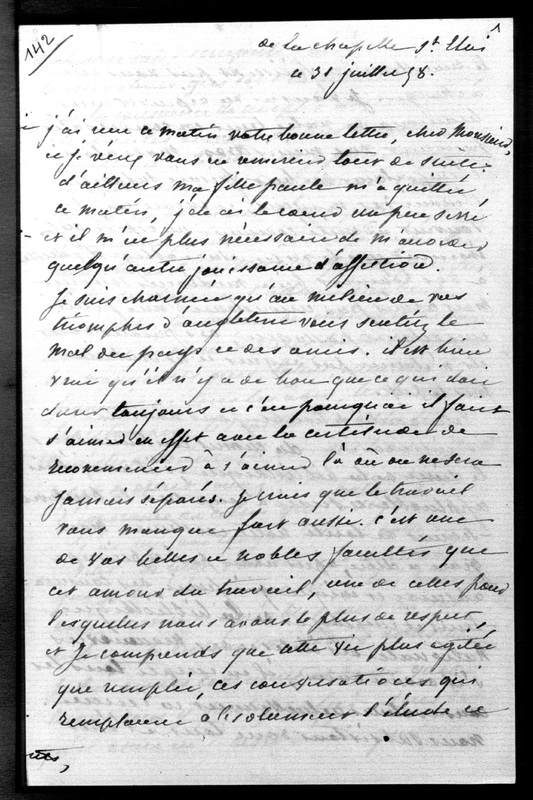 142
de La chapelle St Eloi
ce 31 juillet 58.
j'ai reçu ce matin votre bonne lettre, cher Monsieur,
et je veux vous en remercier tout de suite.
d'ailleurs ma fille paule m'a quittée
ce matin, j'ai le coeur un peu serré
et il m'est plus nécessaire de m'accorder
quelqu'autre jouissance d'affection.
Je suis charmée qu'au milieu de vos
triomphes d'angleterre vous sentiez le
mal du pays et des amis. il est bien
vrai qu'il n'y a de bon que ce qui doit
durer toujours et c'est pourquoi il faut
s'aimer en effet avec la certitude de
recommencer à s'aimer là où on ne sera
jamais séparés. Je crois que le travail
vous manque fort aussi. c'est une
de vos belles et nobles facultés que
cet amour du travail, une de celles pour
lesquelles nous avons le plus de respect,
et je comprends que cette vie plus agitée
que remplie, ces conversations qui
remplacent absolument l'étude et